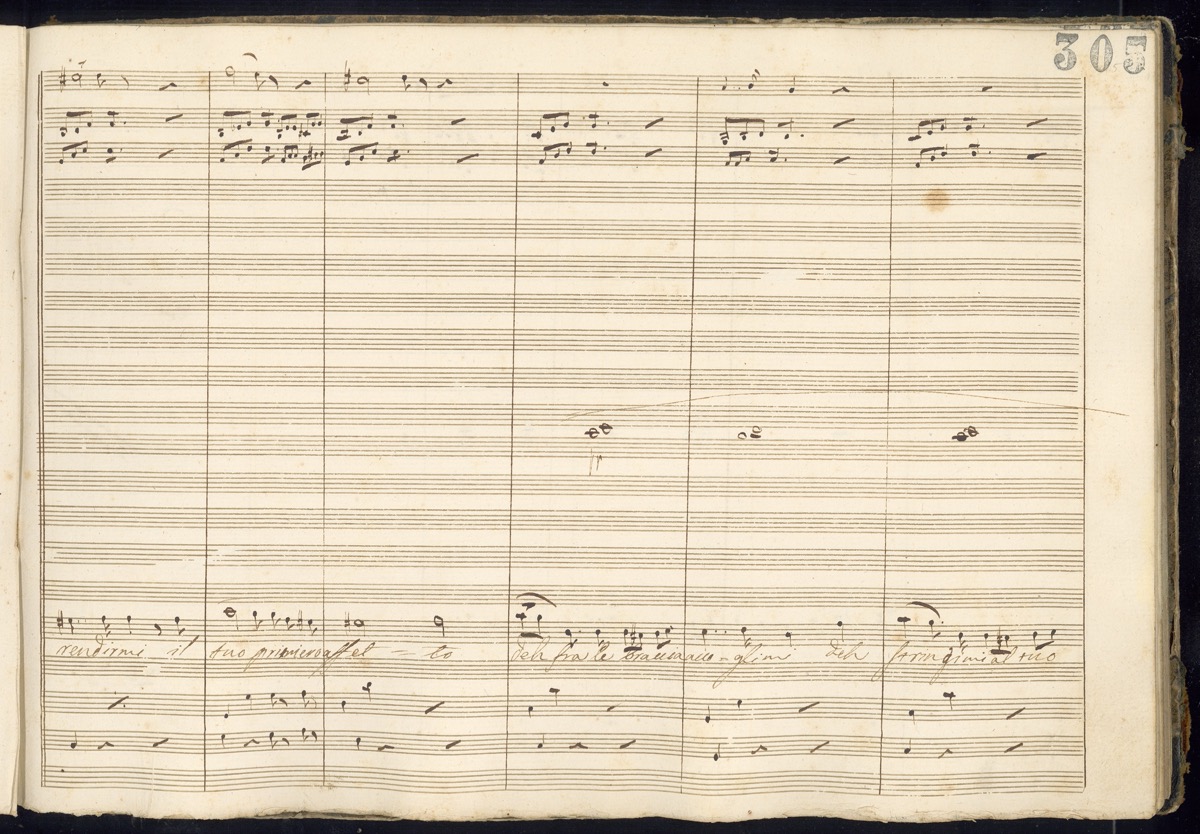 305
pp
rendirmi il tuo primiero affet - to deh fra le braccia acco - glimi deh stringimi al tuo